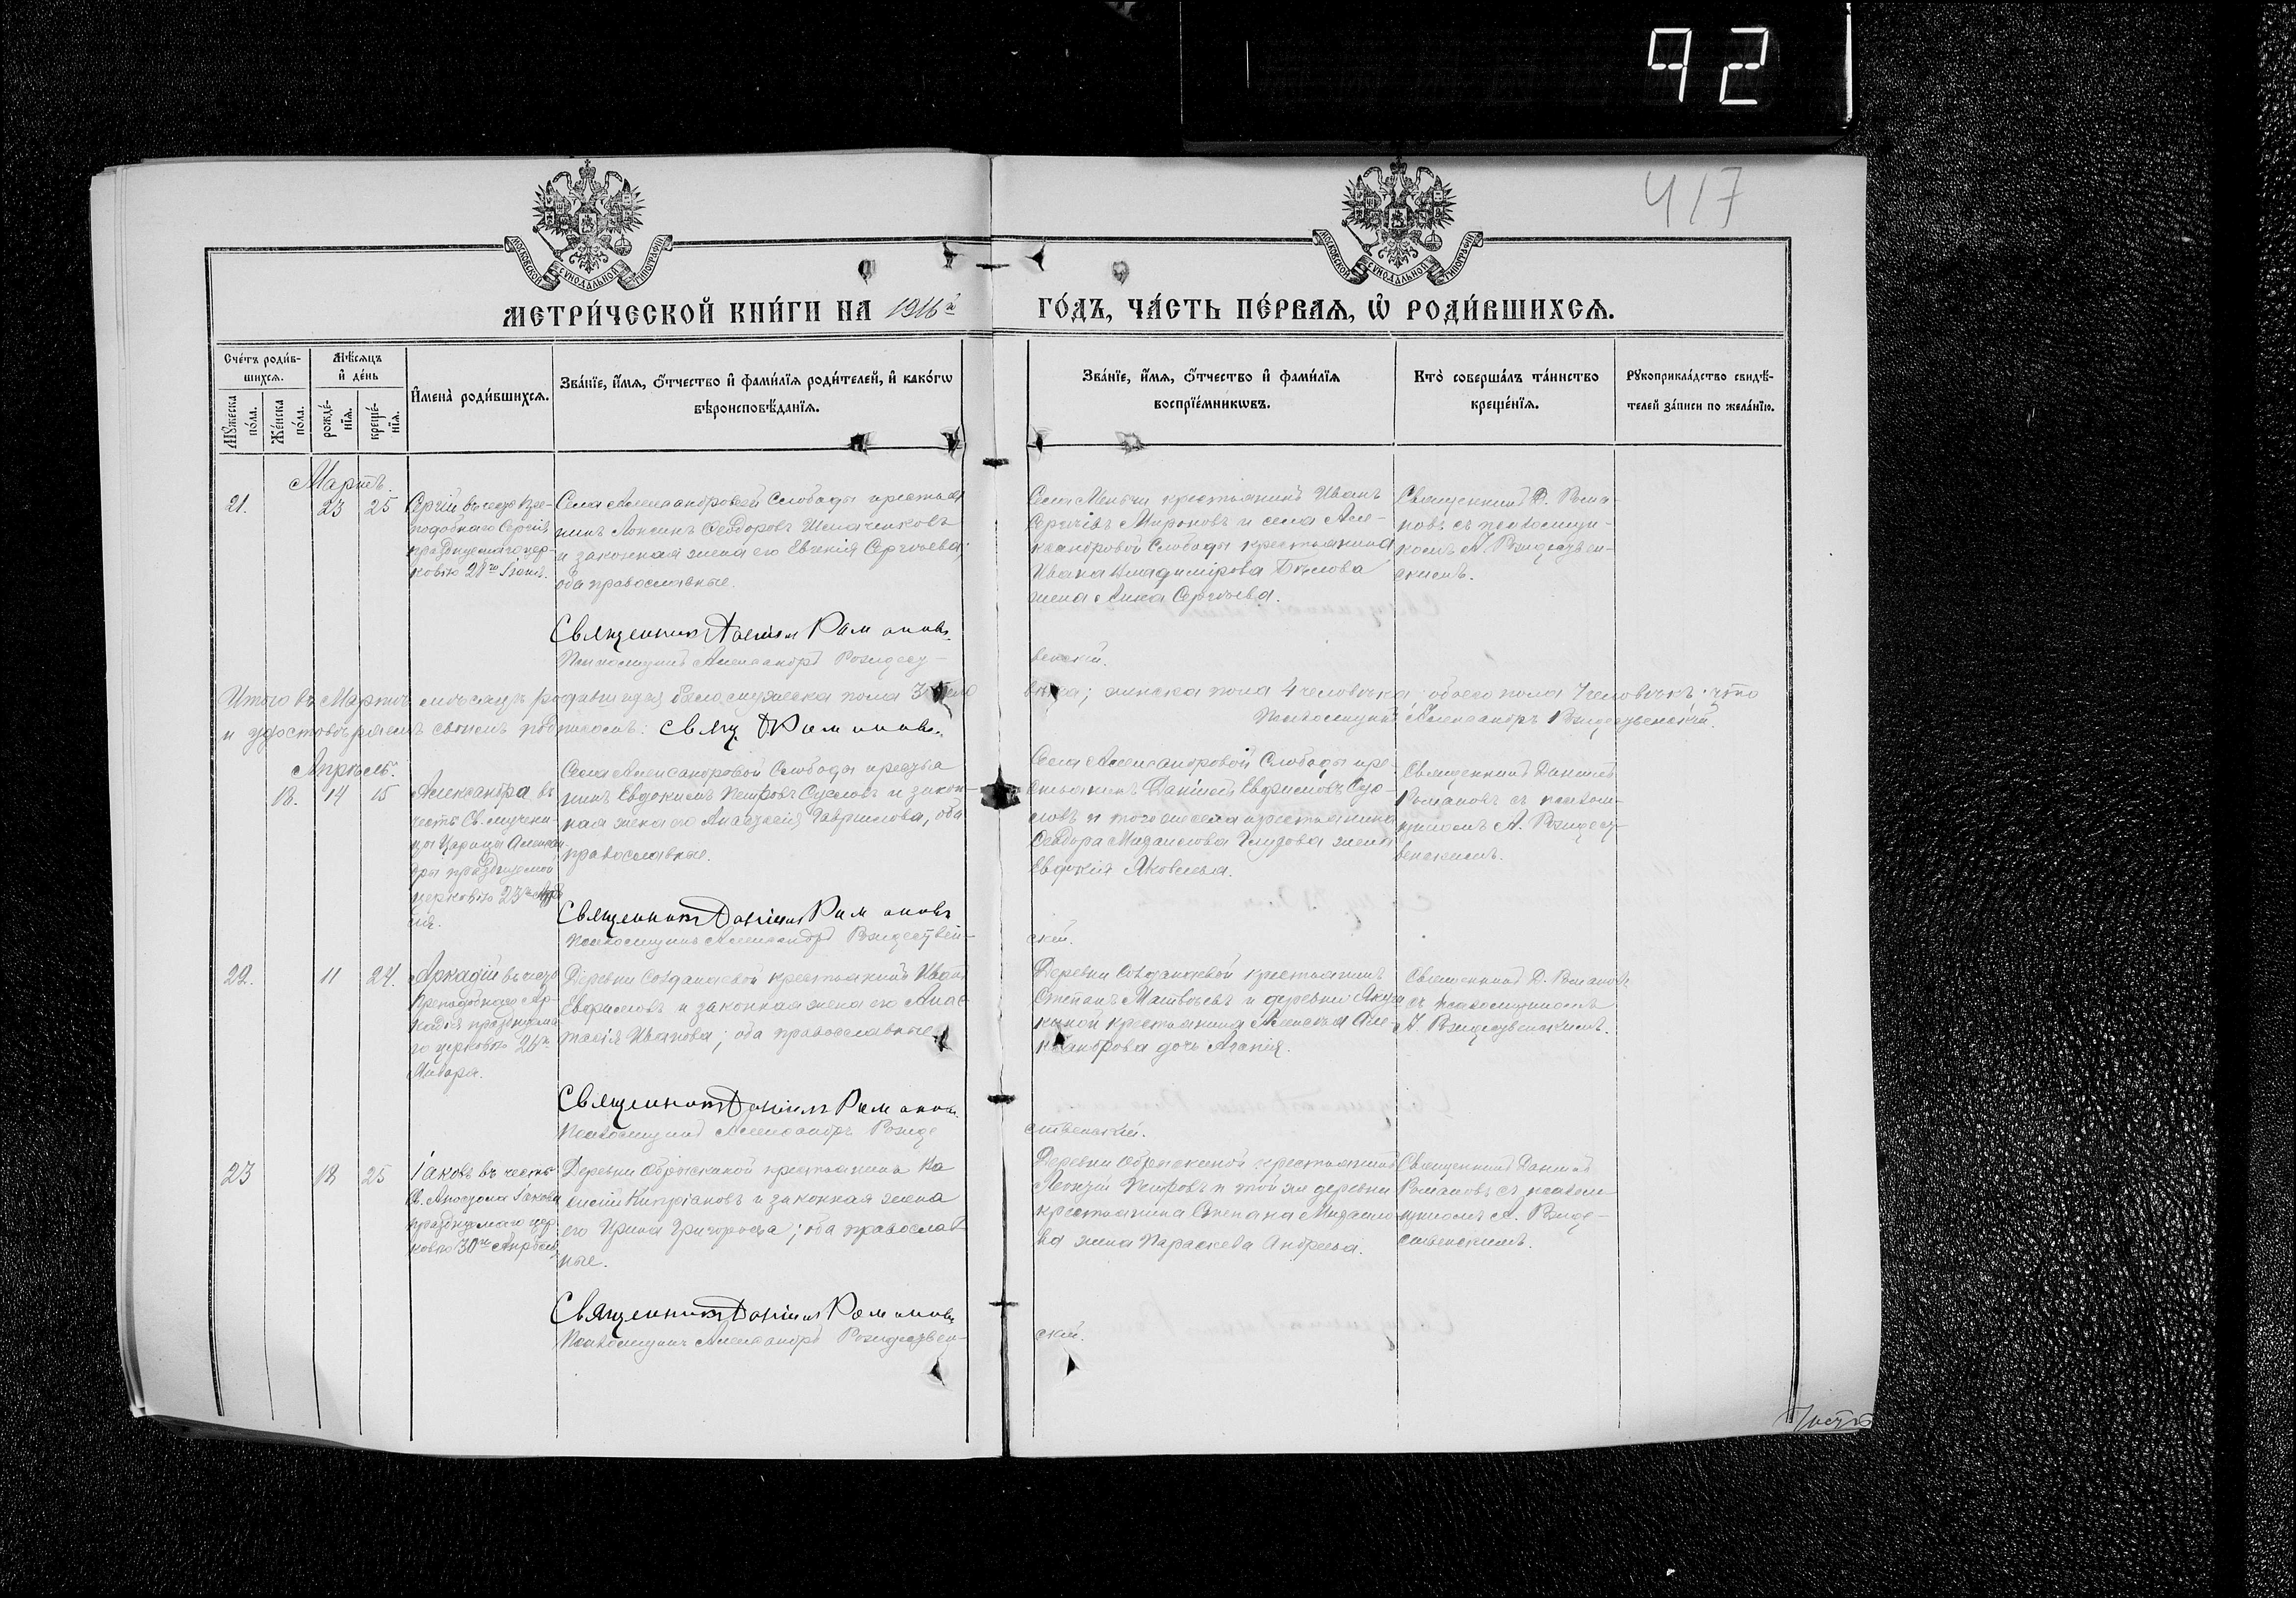 92
417
МОСКОВСКОЙ СУНОДАЛЬНОЙ ТИПОГРАФІИ
МОСКОВСКОЙ СУНОДАЛЬНОЙ ТИПОГРАФІИ
МЕТРИ́ЧЕСКОЙ КНИ́ГИ НА 1916й ГО́ДЪ, ЧА́СТЬ ПЕ́РВАЯ, Ѡ РОДИ́ВШИХСЯ.
Сче́тъ роди́в-
шихся.
Мѣ́сяцъ
и де́нь
Му́жеска по́ла.
Же́нска по́ла.
рожде́-
нїя.
креще́-
нїя.
Имена̀ роди́вшихся.
Зва́нїе, и́мя, о́тчество и фами́лїя роди́телей, и како́гѡ
вѣроисповѣ́данїя.
Зва́нїе, и́мя, о́тчество и фами́лїя
воспрїе́мникѡвъ.
Кто̀ соверша́лъ та́инство
креще́нїя.
Рукоприкла́дство свидѣ́-
телей за́писи по жела́нїю.
Мартъ.
21. 23 25
Сергій въ честь Пре-
подобнаго Сергія
празднуемаго цер-
ковію 28го
Села Александровой Слободы крестья
нинъ Ѳеодоровъ
и законная жена его Евгенія Сергѣева;
оба православные.
Священникъ Даніилъ Романовъ
Псаломщикъ Александръ Рождест-
Села крестьянинъ Иванъ
Сергѣевъ Мироновъ и села Але-
ксандровой Слободы крестьянина
Ивана Владимірова Бѣлова
жена Анна Сергѣева.
венскій.
Священникъ Д. Рома-
новъ съ псаломщи-
комъ А. Рождествен-
скимъ.
Итого въ Мартѣ мѣсяцѣ родившихся было мужеска пола 3 чело
вѣка; женска пола 4 человѣка обоего пола 7 человѣкъ что
и удостовѣряемъ своимъ подписомъ: Свящ. Д. Романовъ.
Псаломщикъ Александръ Рождественскій.
Апрѣль.
18. 14 15
Александра въ
честь Св. мучени-
цы Царицы Александ
ры празднуемой
церковію 23го Апрѣ
ля.
Села Александровой Слободы крестья
нинъ Евдокимъ Петровъ Сусловъ и закон-
ная жена его Анастасія Гаврилова, оба
православные.
Священникъ Даніилъ Романовъ
Псаломщикъ Александръ Рождествен-
Села Александровой Слободы кре-
стьянинъ Даніилъ Евфимовъ Сус-
ловъ и того же села крестьянина
Ѳеодора Михайлова жена
Евдокія Яковлева.
скій.
Священникъ Даніилъ
Романовъ съ псалом-
щикомъ А. Рождест-
венскимъ.
22. 11 24.
Аркадій въ честь
Преподобнаго Ар-
кадія празднуема
го церковію 26го
Января.
Деревни крестьянинъ Иванъ
Евфимовъ и законная жена его Анас-
тасія Иванова; оба православные.
Священникъ Даніилъ Романовъ.
Псаломщикъ Александръ Рожде
Деревни крестьянинъ
Степанъ Матвѣевъ и деревни
крестьянина Алексѣя Але-
ксандрова дочь
ственскій.
Священникъ Д. Романовъ
съ псаломщикомъ
А. Рождественскимъ.
23 18 25
Іаковъ въ честь
Св. Апостола Іакова
празднуемаго цер
ковію 30го Апрѣля.
Деревни крестьянинъ Ва
силій Кипріановъ и законная жена
его Ирина Григорьева; оба православ
ные.
Священникъ Даніилъ Романовъ
Псаломщикъ Александръ Рождествен-
Деревни крестьянинъ
Леонтій Петровъ и той же деревни
крестьянина Степана Михайло
ва жена Параскева Андреева.
скій.
Священникъ Даніилъ
Романовъ съ псалом
щикомъ А. Рожде-
ственскимъ.